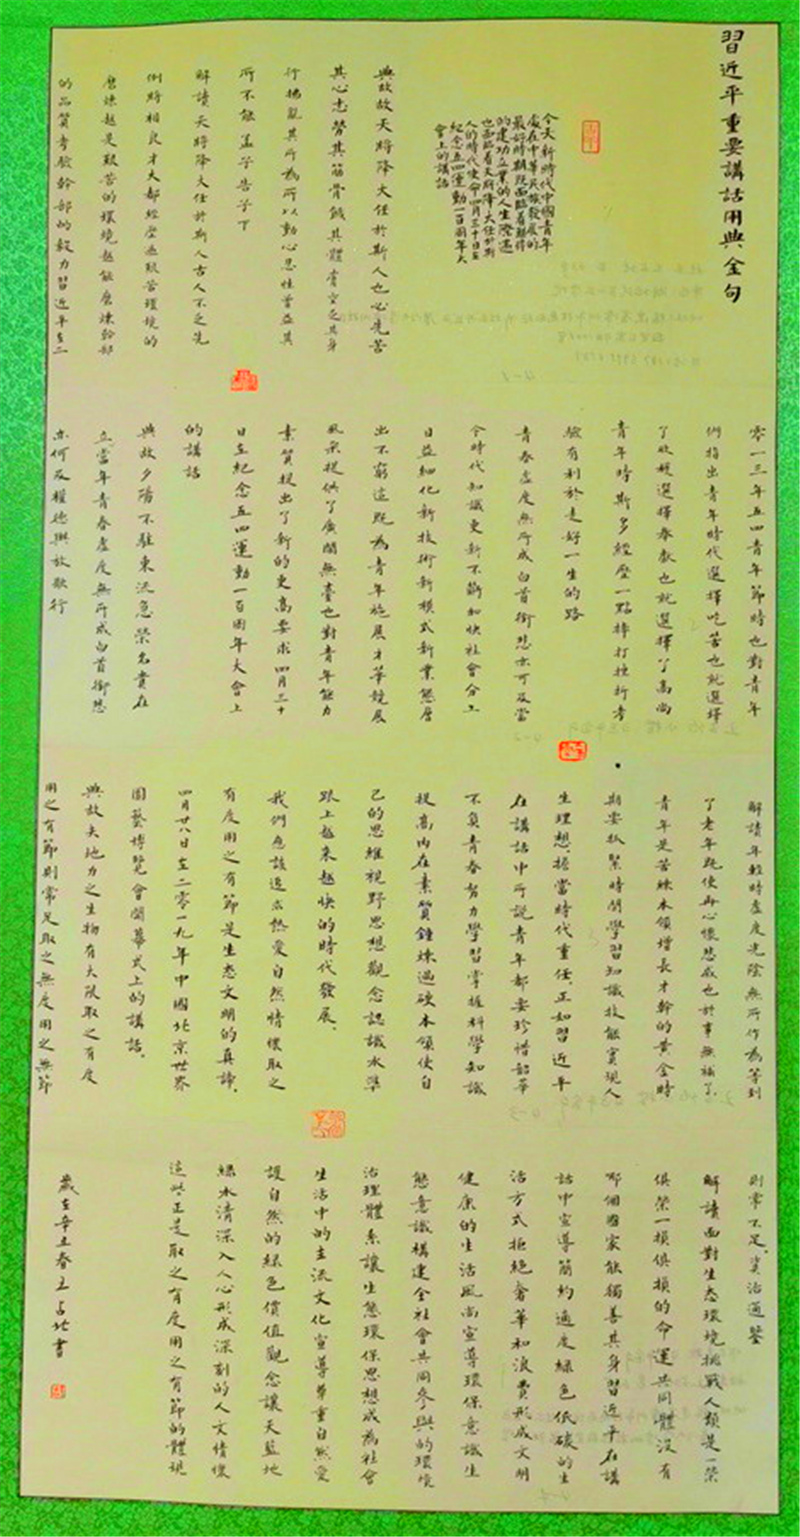 習近平重要講話用典金句
今天新時代中國青年
處在中華民族發展的
最好時期既面臨着難得
的建功立業的人生際遇
也面臨着天將降大任於斯
人的時代使命四月三十日在
紀念五四運動一百周年大
會上的講話
典故故天將降大任於斯人也必先苦
其心志勞其筋骨餓其體膚空乏其身
行拂亂其所為所以動心忍性曾益其
所不能孟子告子下
解讀天將降大任於斯人古人不乏先
例將相良才大都經歷過艱苦環境的
磨煉越是艱苦的環境越能磨煉幹部
的品質考驗幹部的毅力習近平在二
零一三年五四青年節時也對青年
們指出青年時代選擇吃苦也就選擇
了收穫選擇奉獻也就選擇了高尚
青年時期多經歷一點摔打挫折考
驗有利於走好一生的路
青春虛度無所成白首銜悲亦何及當
今時代知識更新不斷加快社會分工
日益細化新技術新模式新業態層
出不窮這既為青年施展才華競展
風采提供了廣闊舞臺也對青年能力
素質提出了新的更高要求四月三十
日在紀念五四運動一百周年大會上
的講話
典故夕陽不駐東流急榮名貴在
立當年青春虛度無所成白首銜悲
亦何及權德輿放歌行
解讀年輕時虛度光陰無所作為等到
了老年既使再心懷悲戚也於事無補了
青年是苦練本領增長才幹的黃金時
期要抓緊時間學習知識技能實現人
生理想擔當時代重任正如習近平
在講話中所說青年都要珍惜韶華
不負青春努力學習掌握科學知識
提高內在素質錘煉過硬本領使自
己的思維視野思想觀念認識水準
跟上越來越快的時代發展
我們應該追求熱愛自然情懷取之
有度用之有節是生态文明的真諦
四月廿八日在二零一九年中國北京世界
園藝博覽會開幕式上的講話
典故夫地力之生物有大限取之有度
用之有節則常足取之無度用之無節
則常不足資治通鑒
解讀面對生态環境挑戰人類是一榮
俱榮一損俱損的命運共同體沒有
哪個國家能獨善其身習近平在講
話中宣導簡約適度綠色低碳的生
活方式拒絕奢華和浪費形成文明
健康的生活風尚宣導環保意識生
態意識構建全社會共同參與的環境
治理體系讓生態環保思想成為社會
生活中的主流文化宣導尊重自然愛
護自然的綠色價值觀念讓天藍地
綠水清深入人心形成深刻的人文情懷
這些正是取之有度用之有節的體現
歲在辛丑春王占地書